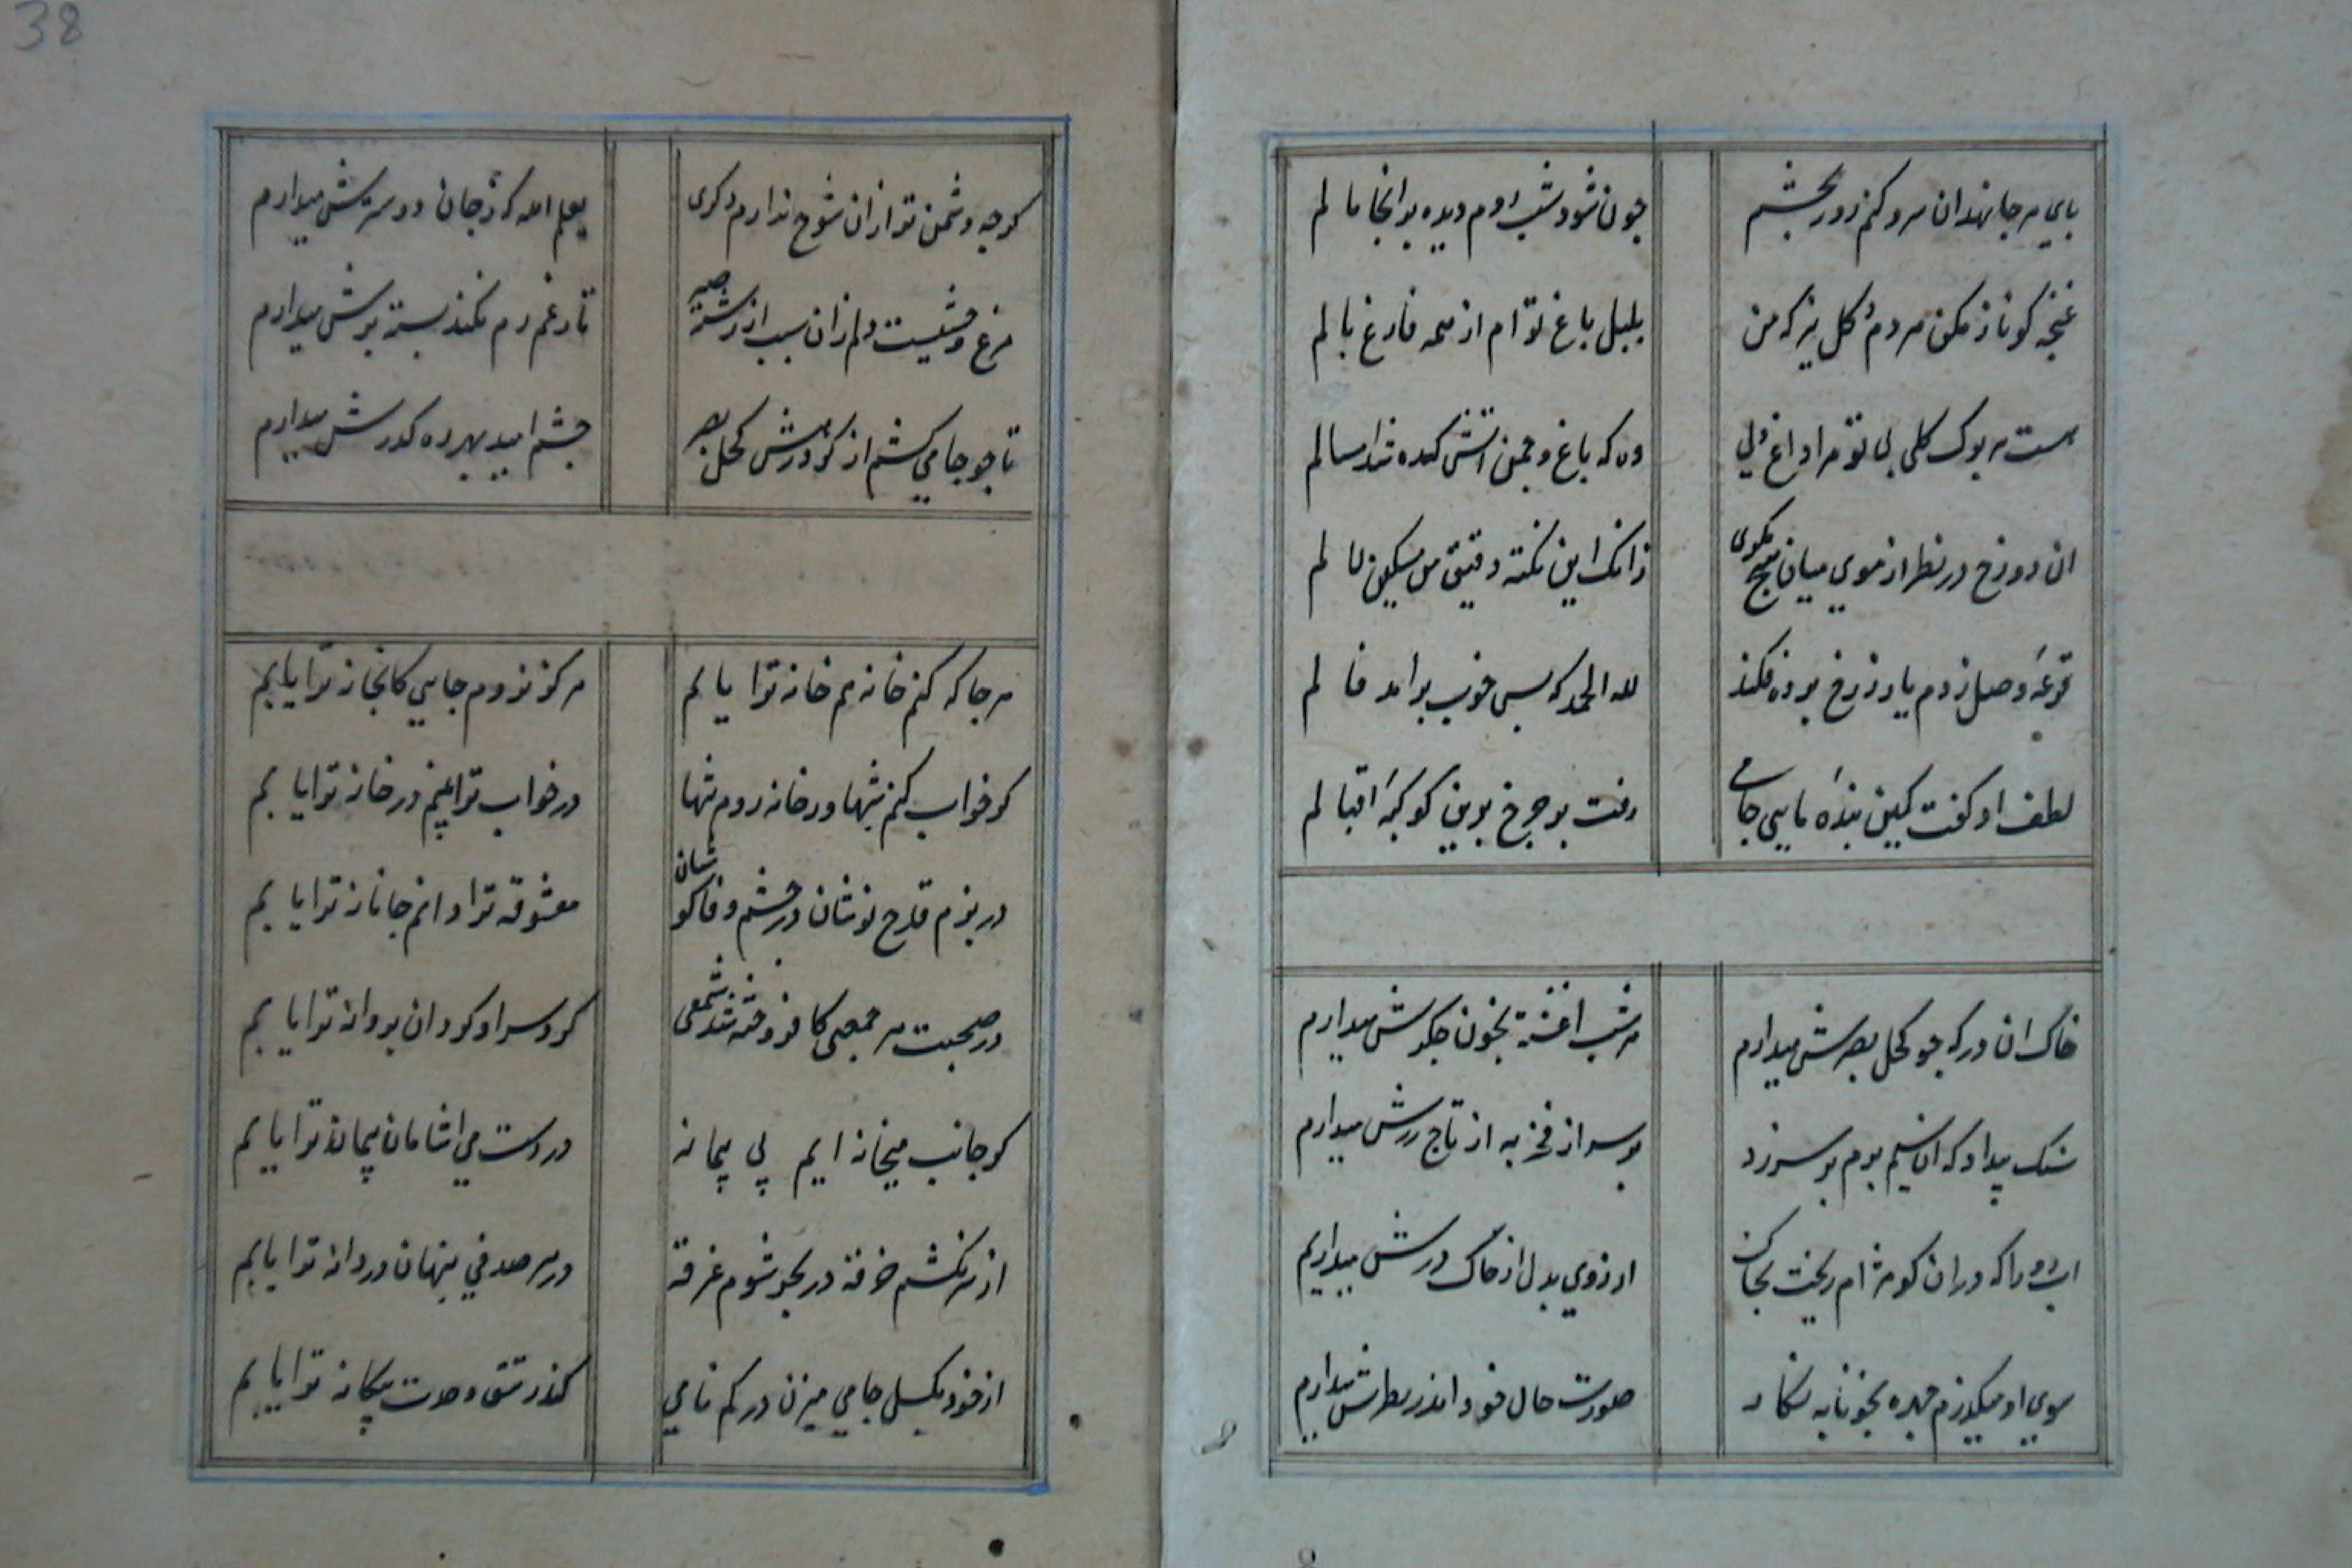 38
پای هر جا نهد آن سرو کنم زور بچشم
چون شود شب روم دیده بر آنجا مالم
غنچه کو ناز مکن هر دم و کل نیز که من
بلبل باغ توام از همه فارغ بالم
هست هر برک کلی بی تو مرا داغ دلی
وه که باغ و چمن آتشکده شد امسالم
ان دو زخ در نظر از موی میان هیچ مکوی
زانک این نکته دقیق من مسکین لالم
قرعه وصل زدم یار ز رخ برده فکند
لله الحمد که بس خوب برآمد فالم
لطف او کفت کمین بنده مایی جامی
رفت بر چرخ برین کوکبه اقبالم
خاک ان در که چو کحل بصرش میدارم
هر شب اغشته بخون جکرش میدارم
سنک بیداد که ان سیم برم بر سر زد
بر سر از فخر به از تاج زرش میدارم
اب رو را که در ان کو مژه ام ریخت بخاک
ارزوی بدل از خاک درش میدارم
سوی او میکذرم چهره بخونابه نکار
صورت حال خود اندر نظرش میدارم
کرچه دشمن تر ازان شوخ ندارم دکری
یعلم الله که ز جان دوسترش میدارم
مرغ وحشیست دلم زان سبب از رشته صبر
تا ز غم رم نکند بسته پرش میدارم
تا چو جامی کشم از کرد رهش کحل بصر
چشم امید بهر ره کذرش میدارم
هر جا که کنم خانه هم خانه ترا یابم
هرکز نروم جایی کانجا نه ترا یابم
کر خواب کنم شبها ور خانه روم تنها
در خواب ترا بینم در خانه ترا یابم
در بزم قدح نوشان در چشم وفا کوشان
معشوقه ترا دانم جانانه ترا یابم
در صحبت هر جمعی کافروخته شد شمعی
کرد سر او کردان پروانه ترا یابم
کر جانب میخانه ایم پی پیمانه
در دست می اشامان پیمانه ترا یابم
از سر نکشم خرقه در بحر شوم غرقه
در هر صدفی پنهان دردانه ترا یابم
از خود بکسل جامی میزن در کم نامی
کندر تتق وحدت بیکانه ترا یابم